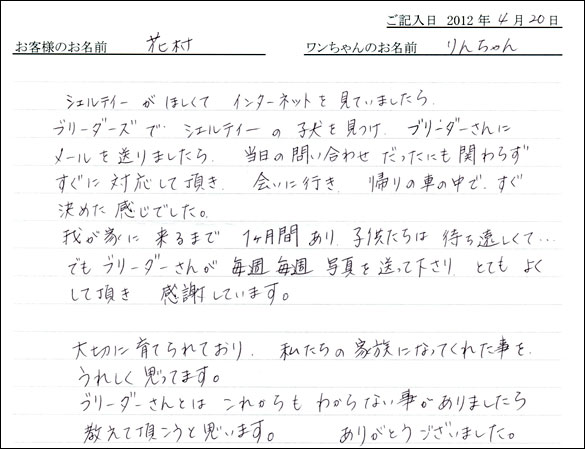 ご記入日 2012年4月20日
お客様のお名前 花村 ワンちゃんのお名前 りんちゃん
シェルティーがほしくて インターネットを見ていましたら、
ブリーダーズで シェルティーの子犬を見つけ、ブリーダーさんに
メールを送りましたら、当日の問い合わせだったにも関わらず
すぐに対応して頂き、会いに行き、帰りの車の中で、すぐ
決めた感じでした。
我が家に来るまで 1ヶ月間あり、子供たちは待ち遠しくて…
でもブリーダーさんが 毎週毎週 写真を送って下さり、とてもよく
して頂き 感謝しています。
大切に育てられており、私たちの家族になってくれた事を、
うれしく思ってます。
ブリーダーさんとは これからも わからない事がありましたら
教えて頂こうと思います。 ありがとうございました。